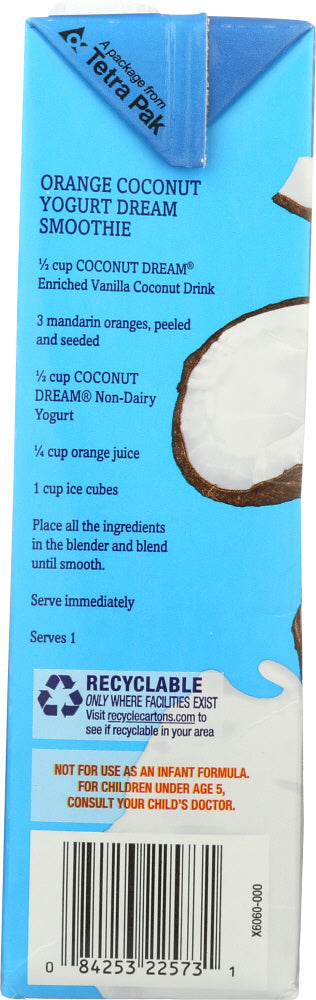 A package from
Tetra Pak
ORANGE COCONUT
YOGURT DREAM
SMOOTHIE
½ cup COCONUT DREAM®
Enriched Vanilla Coconut Drink
3 mandarin oranges, peeled
and seeded
½ cup COCONUT
DREAM® Non-Dairy
Yogurt
¼ cup orange juice
1 cup ice cubes
Place all the ingredients
in the blender and blend
until smooth.
Serve immediately
Serves 1
RECYCLABLE
ONLY WHERE FACILITIES EXIST
Visit recyclecartons.com to
see if recyclable in your area
NOT FOR USE AS AN INFANT FORMULA.
FOR CHILDREN UNDER AGE 5,
CONSULT YOUR CHILD'S DOCTOR.
X6060-000
0 84253 22573 1